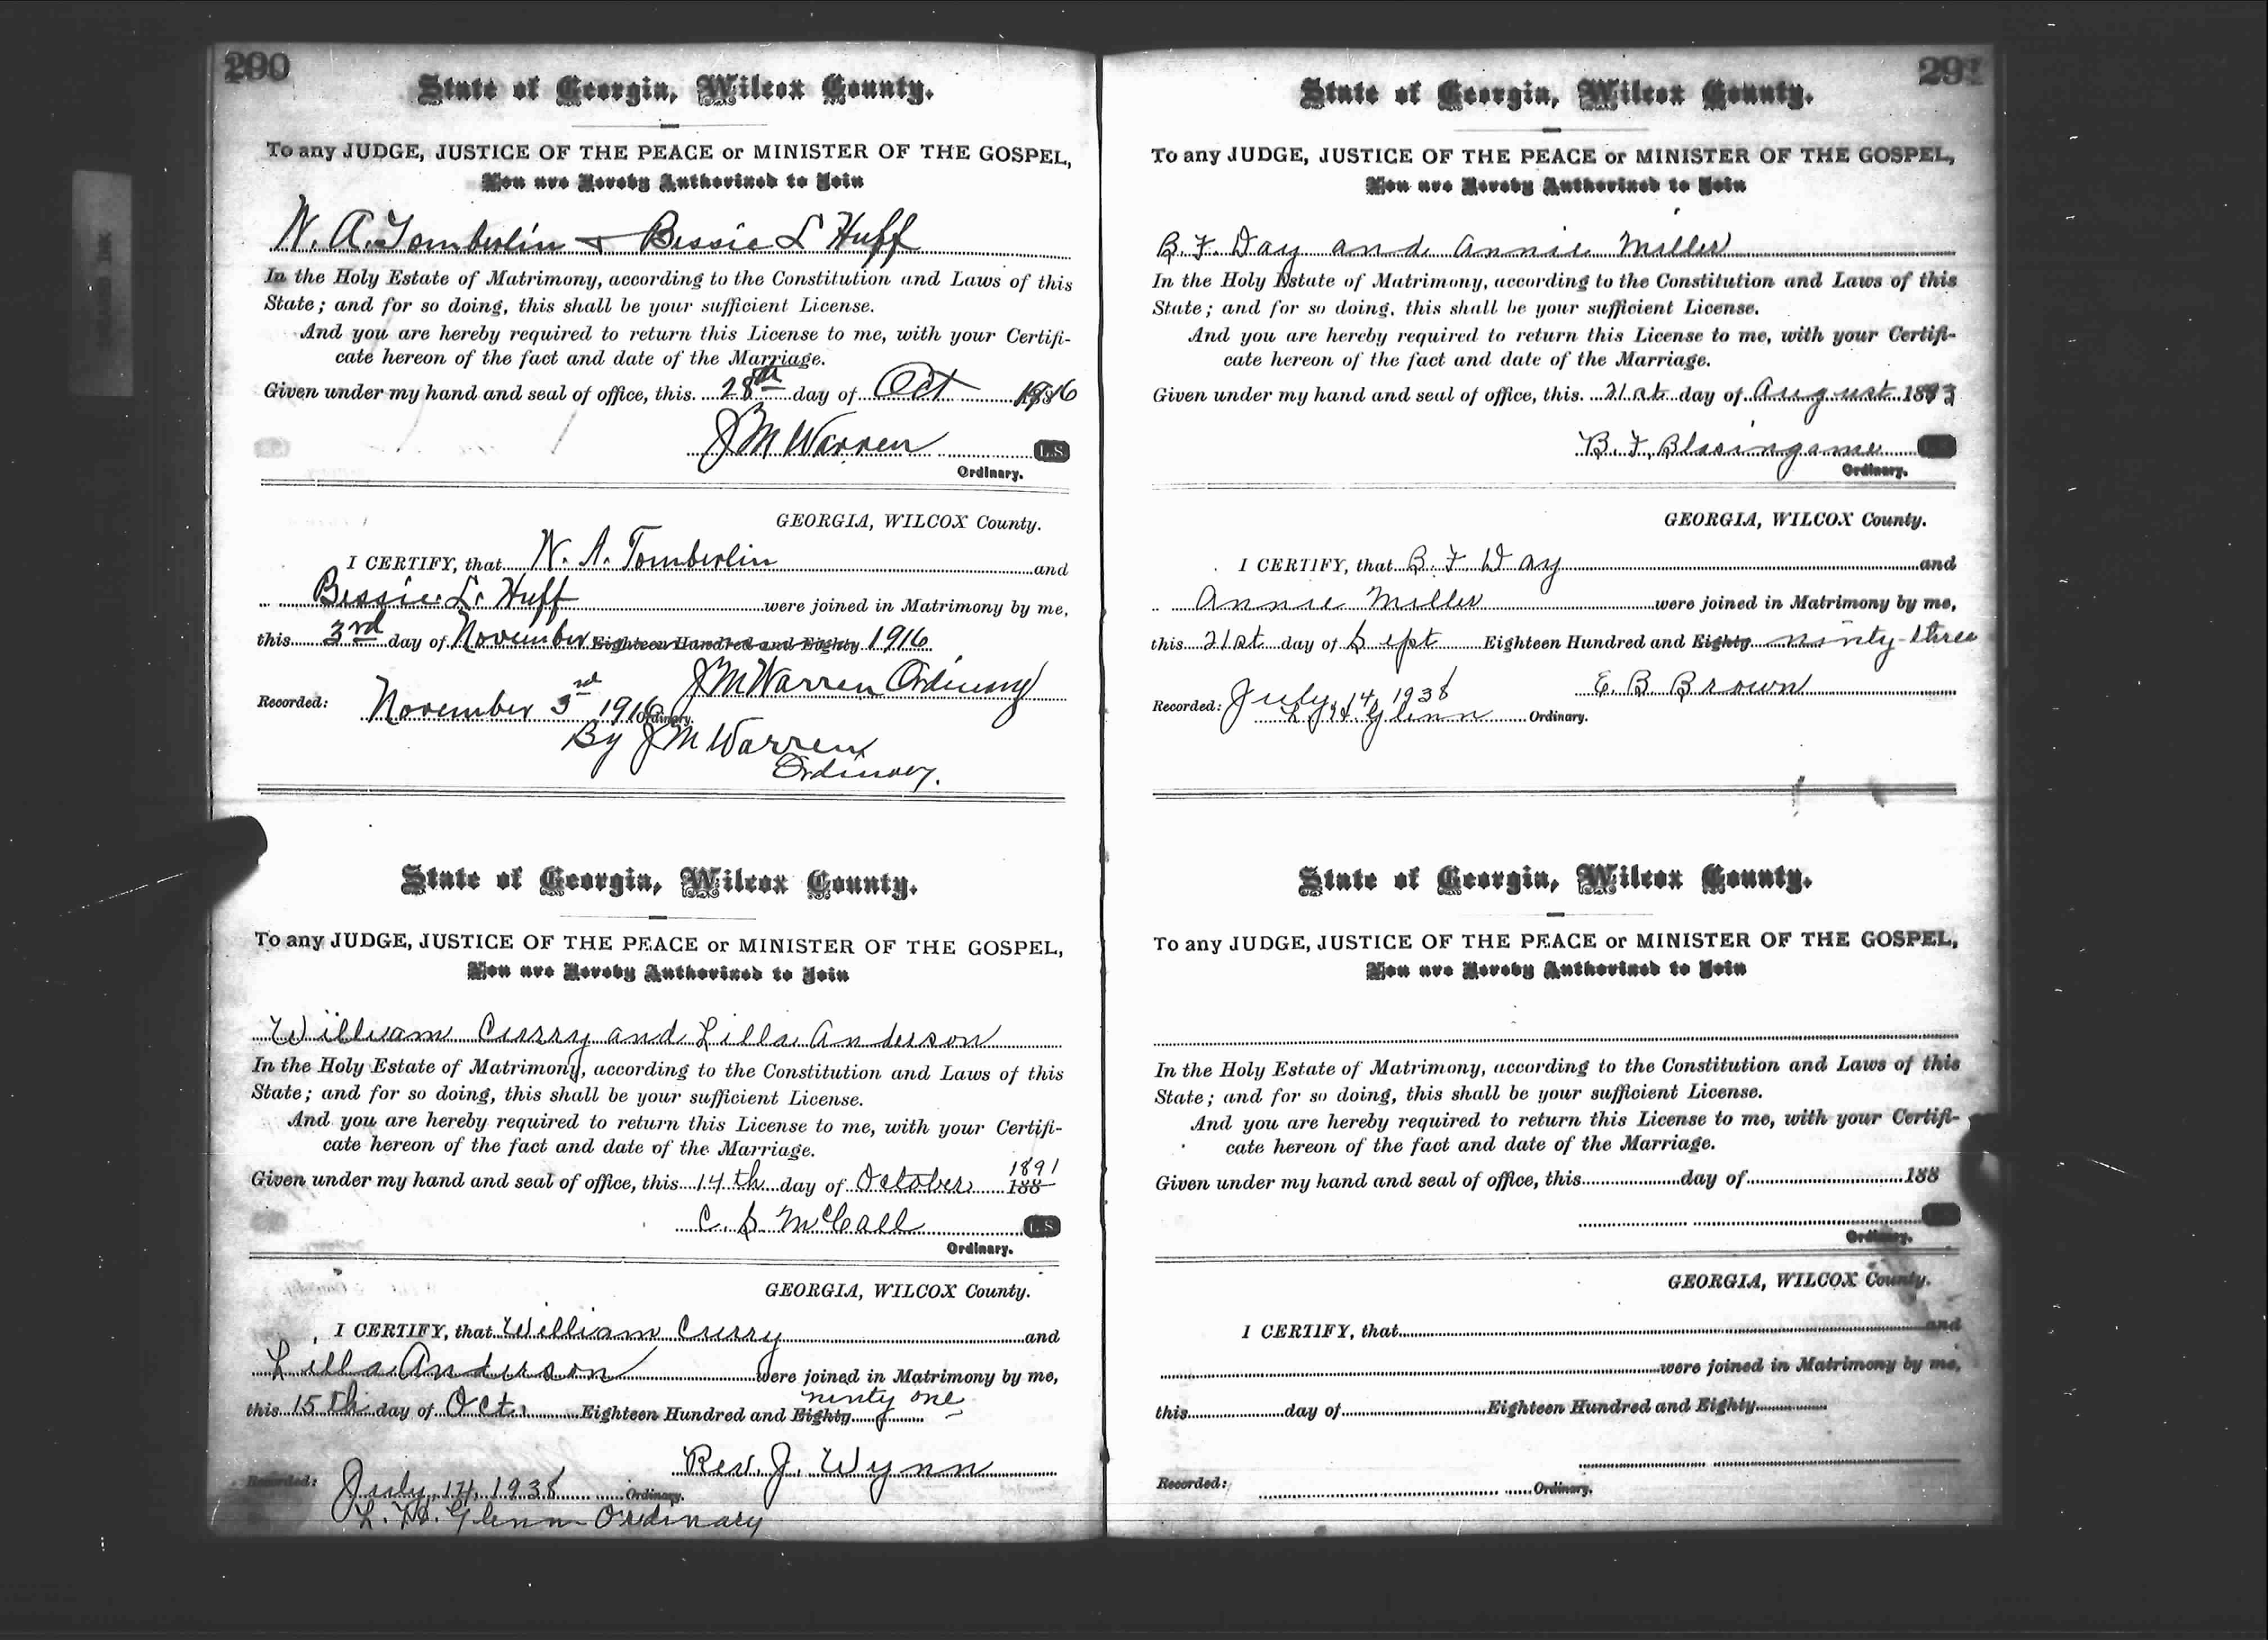 290
State of Georgia, Wilcox County.
To any JUDGE, JUSTICE OF THE PEACE or MINISTER OF THE GOSPEL,
You are Hereby Authorized to Join
W. A. Tomberlin + Bessie L Huff
In the Holy Estate of Matrimony, according to the Constitution and Laws of this
State; and for so doing, this shall be your sufficient License.
And you are hereby required to return this License to me, with your Certifi-
cate hereon of the fact and date of the Marriage.
Given under my hand and seal of office, this 28th day of Oct 1916
J M Warren L.S.
Ordinary.
GEORGIA, WILCOX County.
I CERTIFY, that W. A. Tomberlin and
Bessie L. Huff were joined in Matrimony by me,
this 3rd day of November Eighteen Hundred and Eighty 1916
J M Warren Ordinary
Recorded: November 3rd 1916 Ordinary.
By J M Warren
Ordinary.
State of Georgia, Wilcox County.
To any JUDGE, JUSTICE OF THE PEACE or MINISTER OF THE GOSPEL,
You are Hereby Authorized to Join
William Curry and Lilla Anderson
In the Holy Estate of Matrimony, according to the Constitution and Laws of this
State; and for so doing, this shall be your sufficient License.
And you are hereby required to return this License to me, with your Certifi-
cate hereon of the fact and date of the Marriage.
1891
Given under my hand and seal of office, this 14th day of October 188
C. S McCall L.S.
Ordinary.
GEORGIA, WILCOX County.
I CERTIFY, that William Curry and
Lilla Anderson were joined in Matrimony by me,
ninty one
this 15th day of Oct. Eighteen Hundred and Eighty
Rev. J. Wynn
Recorded: July 14, 1938 Ordinary.
L. H. Glenn Ordinary
291
State of Georgia, Wilcox County.
To any JUDGE, JUSTICE OF THE PEACE or MINISTER OF THE GOSPEL,
You are Hereby Authorized to Join
B. F. Day and Annie Miller
In the Holy Estate of Matrimony, according to the Constitution and Laws of this
State; and for so doing, this shall be your sufficient License.
And you are hereby required to return this License to me, with your Certifi-
cate hereon of the fact and date of the Marriage.
Given under my hand and seal of office, this 21st day of August 1893
B. F. Blasingame
Ordinary.
GEORGIA, WILCOX County.
I CERTIFY, that B. F. Day and
Annie Miller were joined in Matrimony by me,
this 21st day of Sept Eighteen Hundred and Eighty ninty-three
E. B. Brown
Recorded: July 14, 1938
L. H. Glenn Ordinary.
State of Georgia, Wilcox County.
To any JUDGE, JUSTICE OF THE PEACE or MINISTER OF THE GOSPEL,
You are Hereby Authorized to Join
In the Holy Estate of Matrimony, according to the Constitution and Laws of this
State; and for so doing, this shall be your sufficient License.
And you are hereby required to return this License to me, with your Certifi-
cate hereon of the fact and date of the Marriage.
Given under my hand and seal of office, this day of 188
Ordinary.
GEORGIA, WILCOX County.
I CERTIFY, that and
were joined in Matrimony by me,
this day of Eighteen Hundred and Eighty
Recorded: Ordinary.